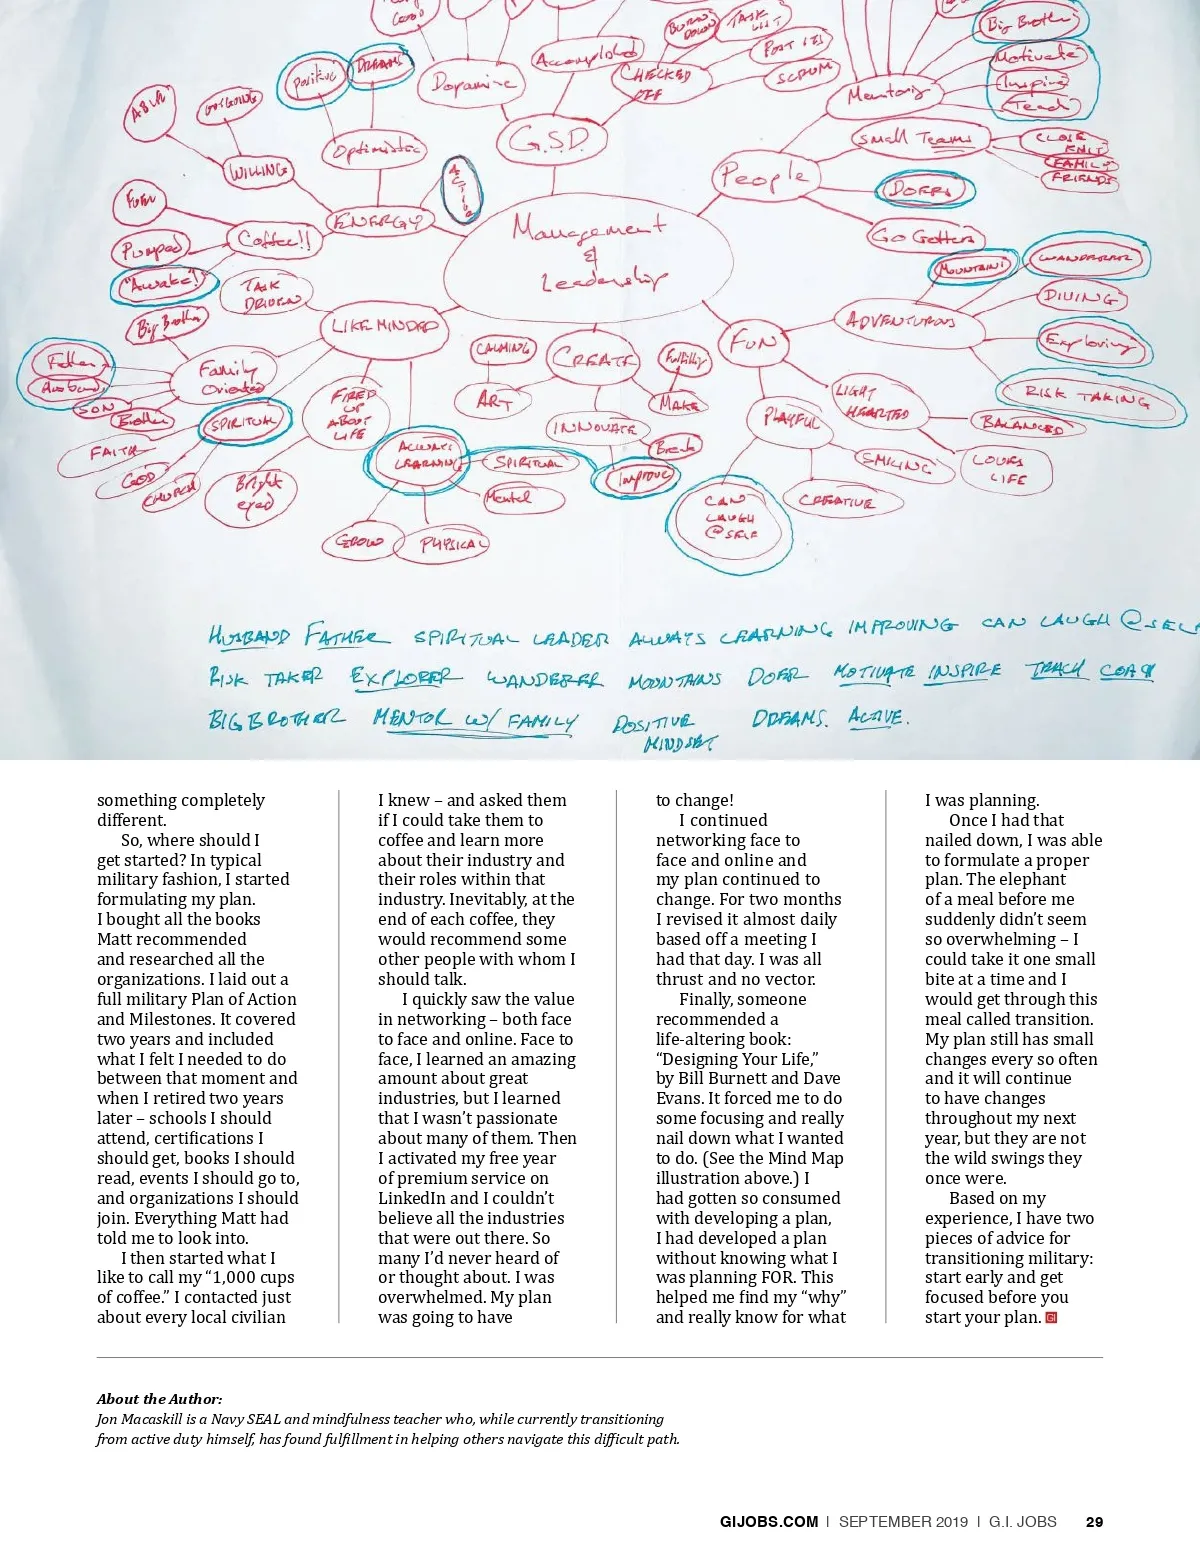 Big Brother
BURN
DOWN
TASK
LIST
POST ITS
SCRUM
Accomplished
CHECKED
OFF
Motivate
Inspire
Teach
Mentoring
Positive
DREAMS
Dopamine
ABLE
ONGOING
Optimistic
G.S.D.
Small Teams
CLOSE
KNIT
FAMILY
FRIENDS
WILLING
People
DOERS
FUEL
ENERGY
Active
Management
&
Leadership
Go Getters
Pumped
Coffee!!
MOUNTAINS
WANDERER
"Awake!"
TASK
DRIVEN
DIVING
Big Brother
LIKE MINDED
ADVENTUROUS
Exploring
FUN
CALMING
CREATE
Fulfilling
Father
Husband
SON
Brother
Family
Oriented
FIRED
UP
ABOUT
LIFE
ART
MAKE
LIGHT
HEARTED
RISK TAKING
SPIRITUAL
PLAYFUL
BALANCED
INNOVATE
Break
Improve
FAITH
GOD
CHURCH
ALWAYS
LEARNING
SPIRITUAL
SMILING
LOVES
LIFE
Bright
eyed
Mental
CAN
LAUGH
@SELF
CREATIVE
GROW
PHYSICAL
HUSBAND FATHER SPIRITUAL LEADER ALWAYS LEARNING IMPROVING CAN LAUGH @SELF
RISK TAKER EXPLORER WANDERER MOUNTAINS DOER MOTIVATE INSPIRE TEACH COACH
BIG BROTHER MENTOR W/ FAMILY POSITIVE MINDSET DREAMS. ACTIVE.
something completely
different.
So, where should I
get started? In typical
military fashion, I started
formulating my plan.
I bought all the books
Matt recommended
and researched all the
organizations. I laid out a
full military Plan of Action
and Milestones. It covered
two years and included
what I felt I needed to do
between that moment and
when I retired two years
later – schools I should
attend, certifications I
should get, books I should
read, events I should go to,
and organizations I should
join. Everything Matt had
told me to look into.
I then started what I
like to call my “1,000 cups
of coffee.” I contacted just
about every local civilian
I knew – and asked them
if I could take them to
coffee and learn more
about their industry and
their roles within that
industry. Inevitably, at the
end of each coffee, they
would recommend some
other people with whom I
should talk.
I quickly saw the value
in networking – both face
to face and online. Face to
face, I learned an amazing
amount about great
industries, but I learned
that I wasn’t passionate
about many of them. Then
I activated my free year
of premium service on
LinkedIn and I couldn’t
believe all the industries
that were out there. So
many I’d never heard of
or thought about. I was
overwhelmed. My plan
was going to have
to change!
I continued
networking face to
face and online and
my plan continued to
change. For two months
I revised it almost daily
based off a meeting I
had that day. I was all
thrust and no vector.
Finally, someone
recommended a
life-altering book:
“Designing Your Life,”
by Bill Burnett and Dave
Evans. It forced me to do
some focusing and really
nail down what I wanted
to do. (See the Mind Map
illustration above.) I
had gotten so consumed
with developing a plan,
I had developed a plan
without knowing what I
was planning FOR. This
helped me find my “why”
and really know for what
I was planning.
Once I had that
nailed down, I was able
to formulate a proper
plan. The elephant
of a meal before me
suddenly didn’t seem
so overwhelming – I
could take it one small
bite at a time and I
would get through this
meal called transition.
My plan still has small
changes every so often
and it will continue
to have changes
throughout my next
year, but they are not
the wild swings they
once were.
Based on my
experience, I have two
pieces of advice for
transitioning military:
start early and get
focused before you
start your plan. GI
About the Author:
Jon Macaskill is a Navy SEAL and mindfulness teacher who, while currently transitioning
from active duty himself, has found fulfillment in helping others navigate this difficult path.
GIJOBS.COM | SEPTEMBER 2019 | G.I. JOBS 29